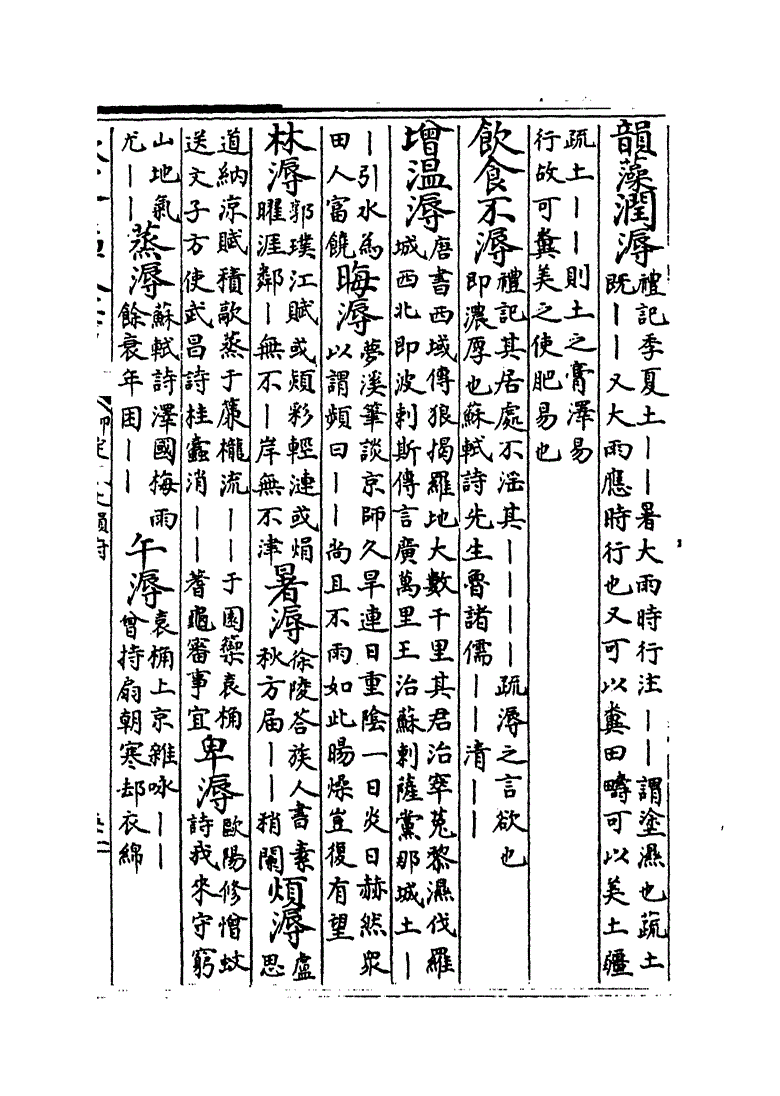 韻藻潤溽禮記季夏土丨丨暑大雨時行注丨丨謂塗濕也䟽土
既丨丨又大雨應時行也又可以糞田疇可以美土疆
疏土丨丨則土之膏澤易
行故可糞美之使肥易也
飲食不溽禮記其居處不淫其丨丨丨丨疏溽之言欲也
即濃厚也蘇軾詩先生魯諸儒丨丨清丨丨
增溫溽唐書西域傳狼揭羅地大數千里其君治窣莵黎濕伐羅
城西北即波剌斯傳言廣萬里王治蘇剌薩黨那城土丨
丨引水為
田人富饒
晦溽夢溪筆談京師久旱連日重陰一日炎日赫然衆
以謂頻日丨丨尚且不雨如此暘燥豈復有望
林溽郭璞江賦或熲彩輕漣或焆
曜涯鄰丨無不丨岸無不津
暑溽徐陵答族人書素
秋方届丨丨稍闌
煩溽盧
思
道納涼賦積歊蒸于簾櫳流丨丨于園籞袁桷
送文子方使武昌詩桂蠹消丨丨蓍龜審事宜
卑溽歐陽修憎蚊
詩我來守窮
山地氣
尤丨丨
蒸溽蘇軾詩澤國梅雨
餘衰年困丨丨
午溽袁桷上京雜咏丨丨
曾持扇朝寒却衣綿